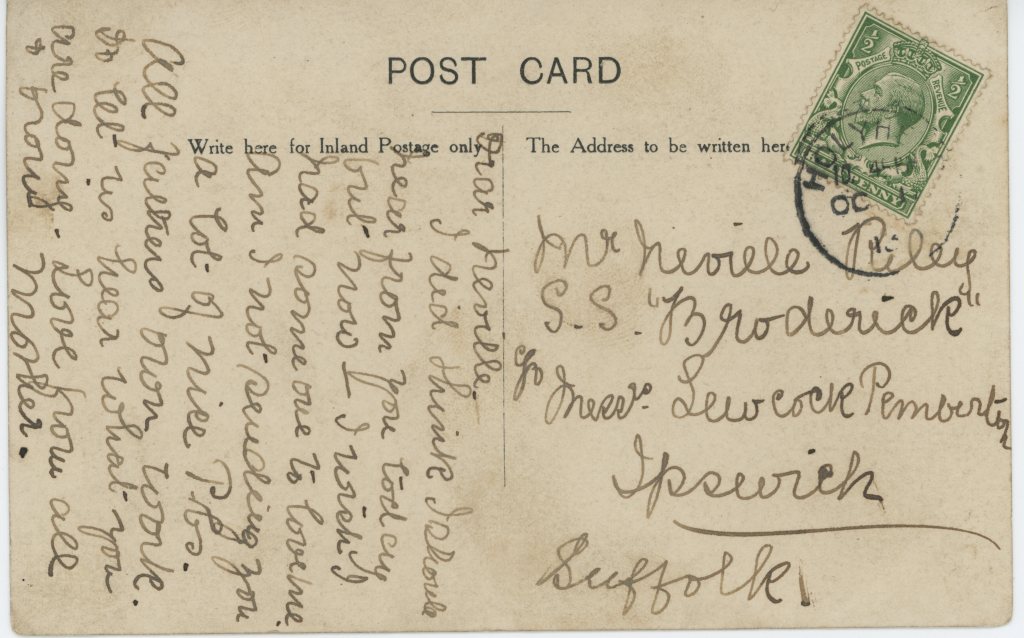 POST CARD
Write here for Inland Postage only
The Address to be written here
½ ½
POSTAGE REVENUE
PENNY
HOLYH
OC
Dear Neville.
I did think I should
hear from you today
but now – I wish I
had some one to love me.
Am I not sending you
a lot of nice P.Cs.
All fathers own work.
Do let us hear what you
are doing - Love from all
& Mother.
Mr Neville Riley
S.S. "Broderick"
c/o Messrs. Lewcock Pemberton
Ipswich
Suffolk